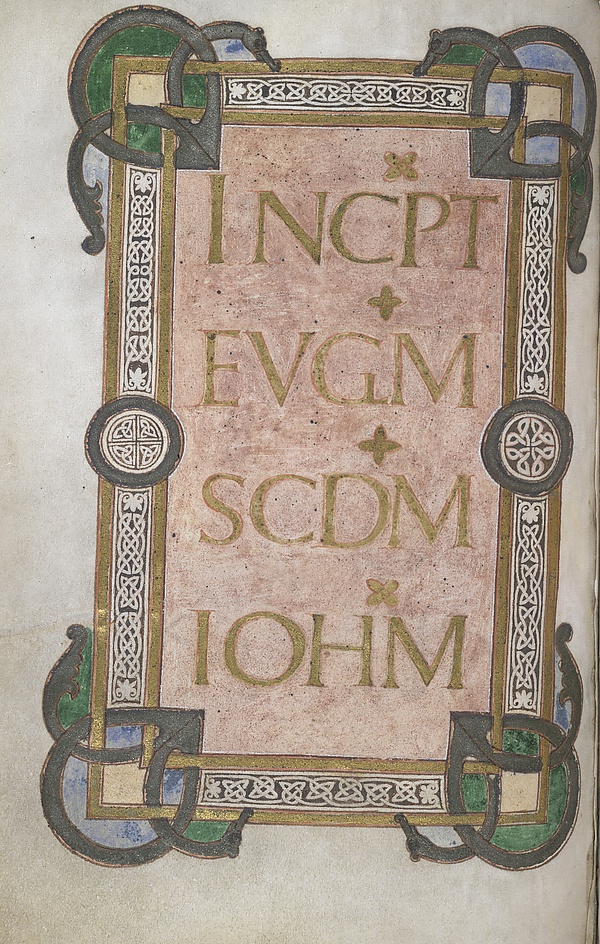 INCPT
EVGM
SCDM
IOHM